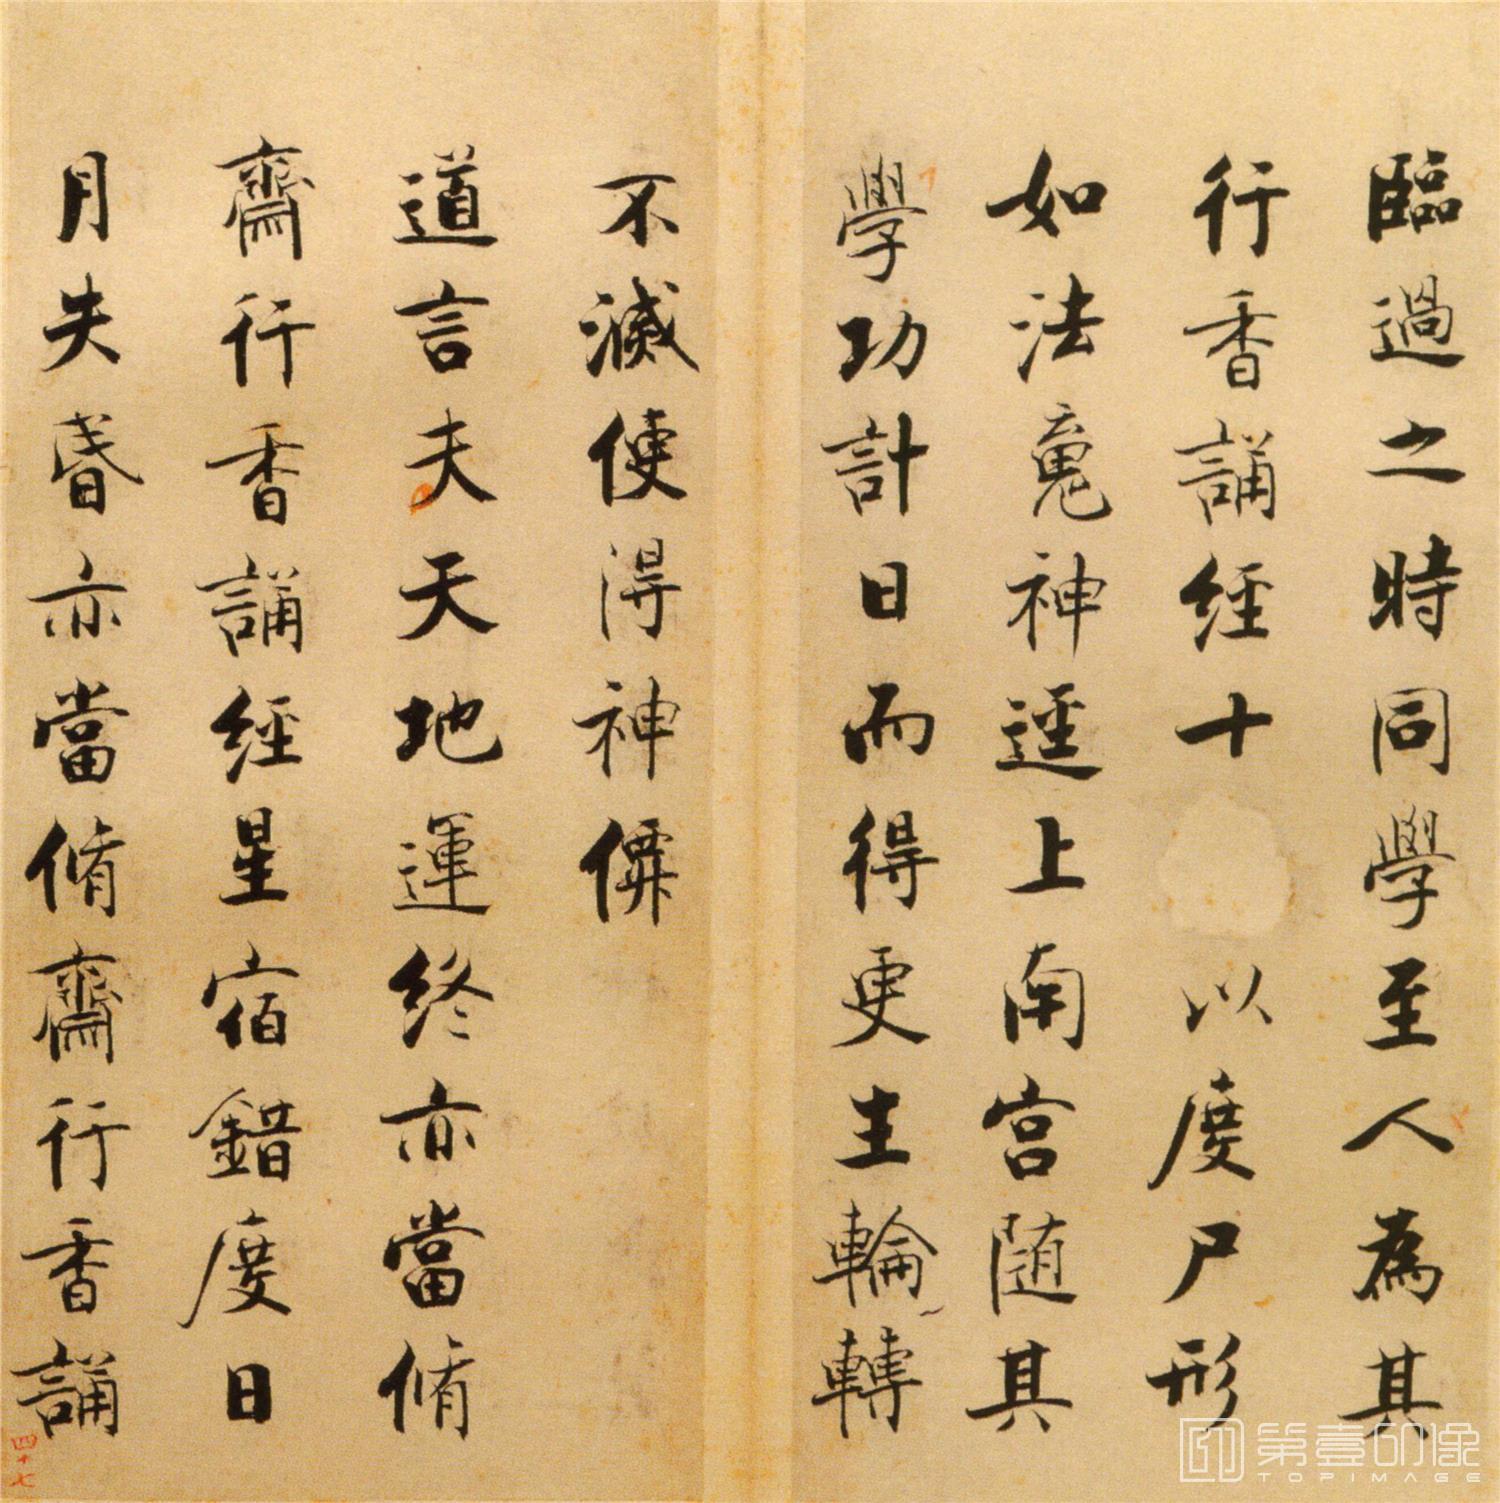 臨過之時同學至人為其
行香誦經十以度尸形
如法魂神逕上南宮随其
學功計日而得更生輪轉
不滅便得神僊
道言夫天地運終亦當脩
齋行香誦經星宿錯度日
月失昏亦當脩齋行香誦
四十七
第壹印像
TOPIMAGE